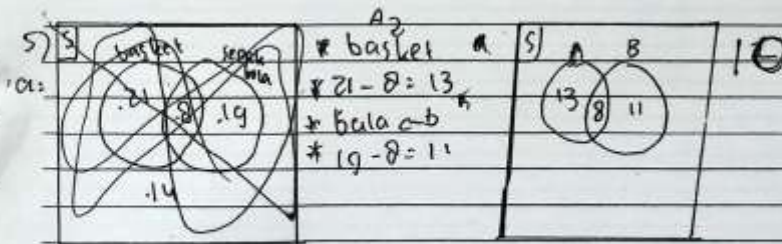 5) S
basket
sepak bola
a:
.21 .8 .19
.14
* basket
* 21 - 8 = 13
* bola
* 19 - 8 = 11
S
A B
13 8 11